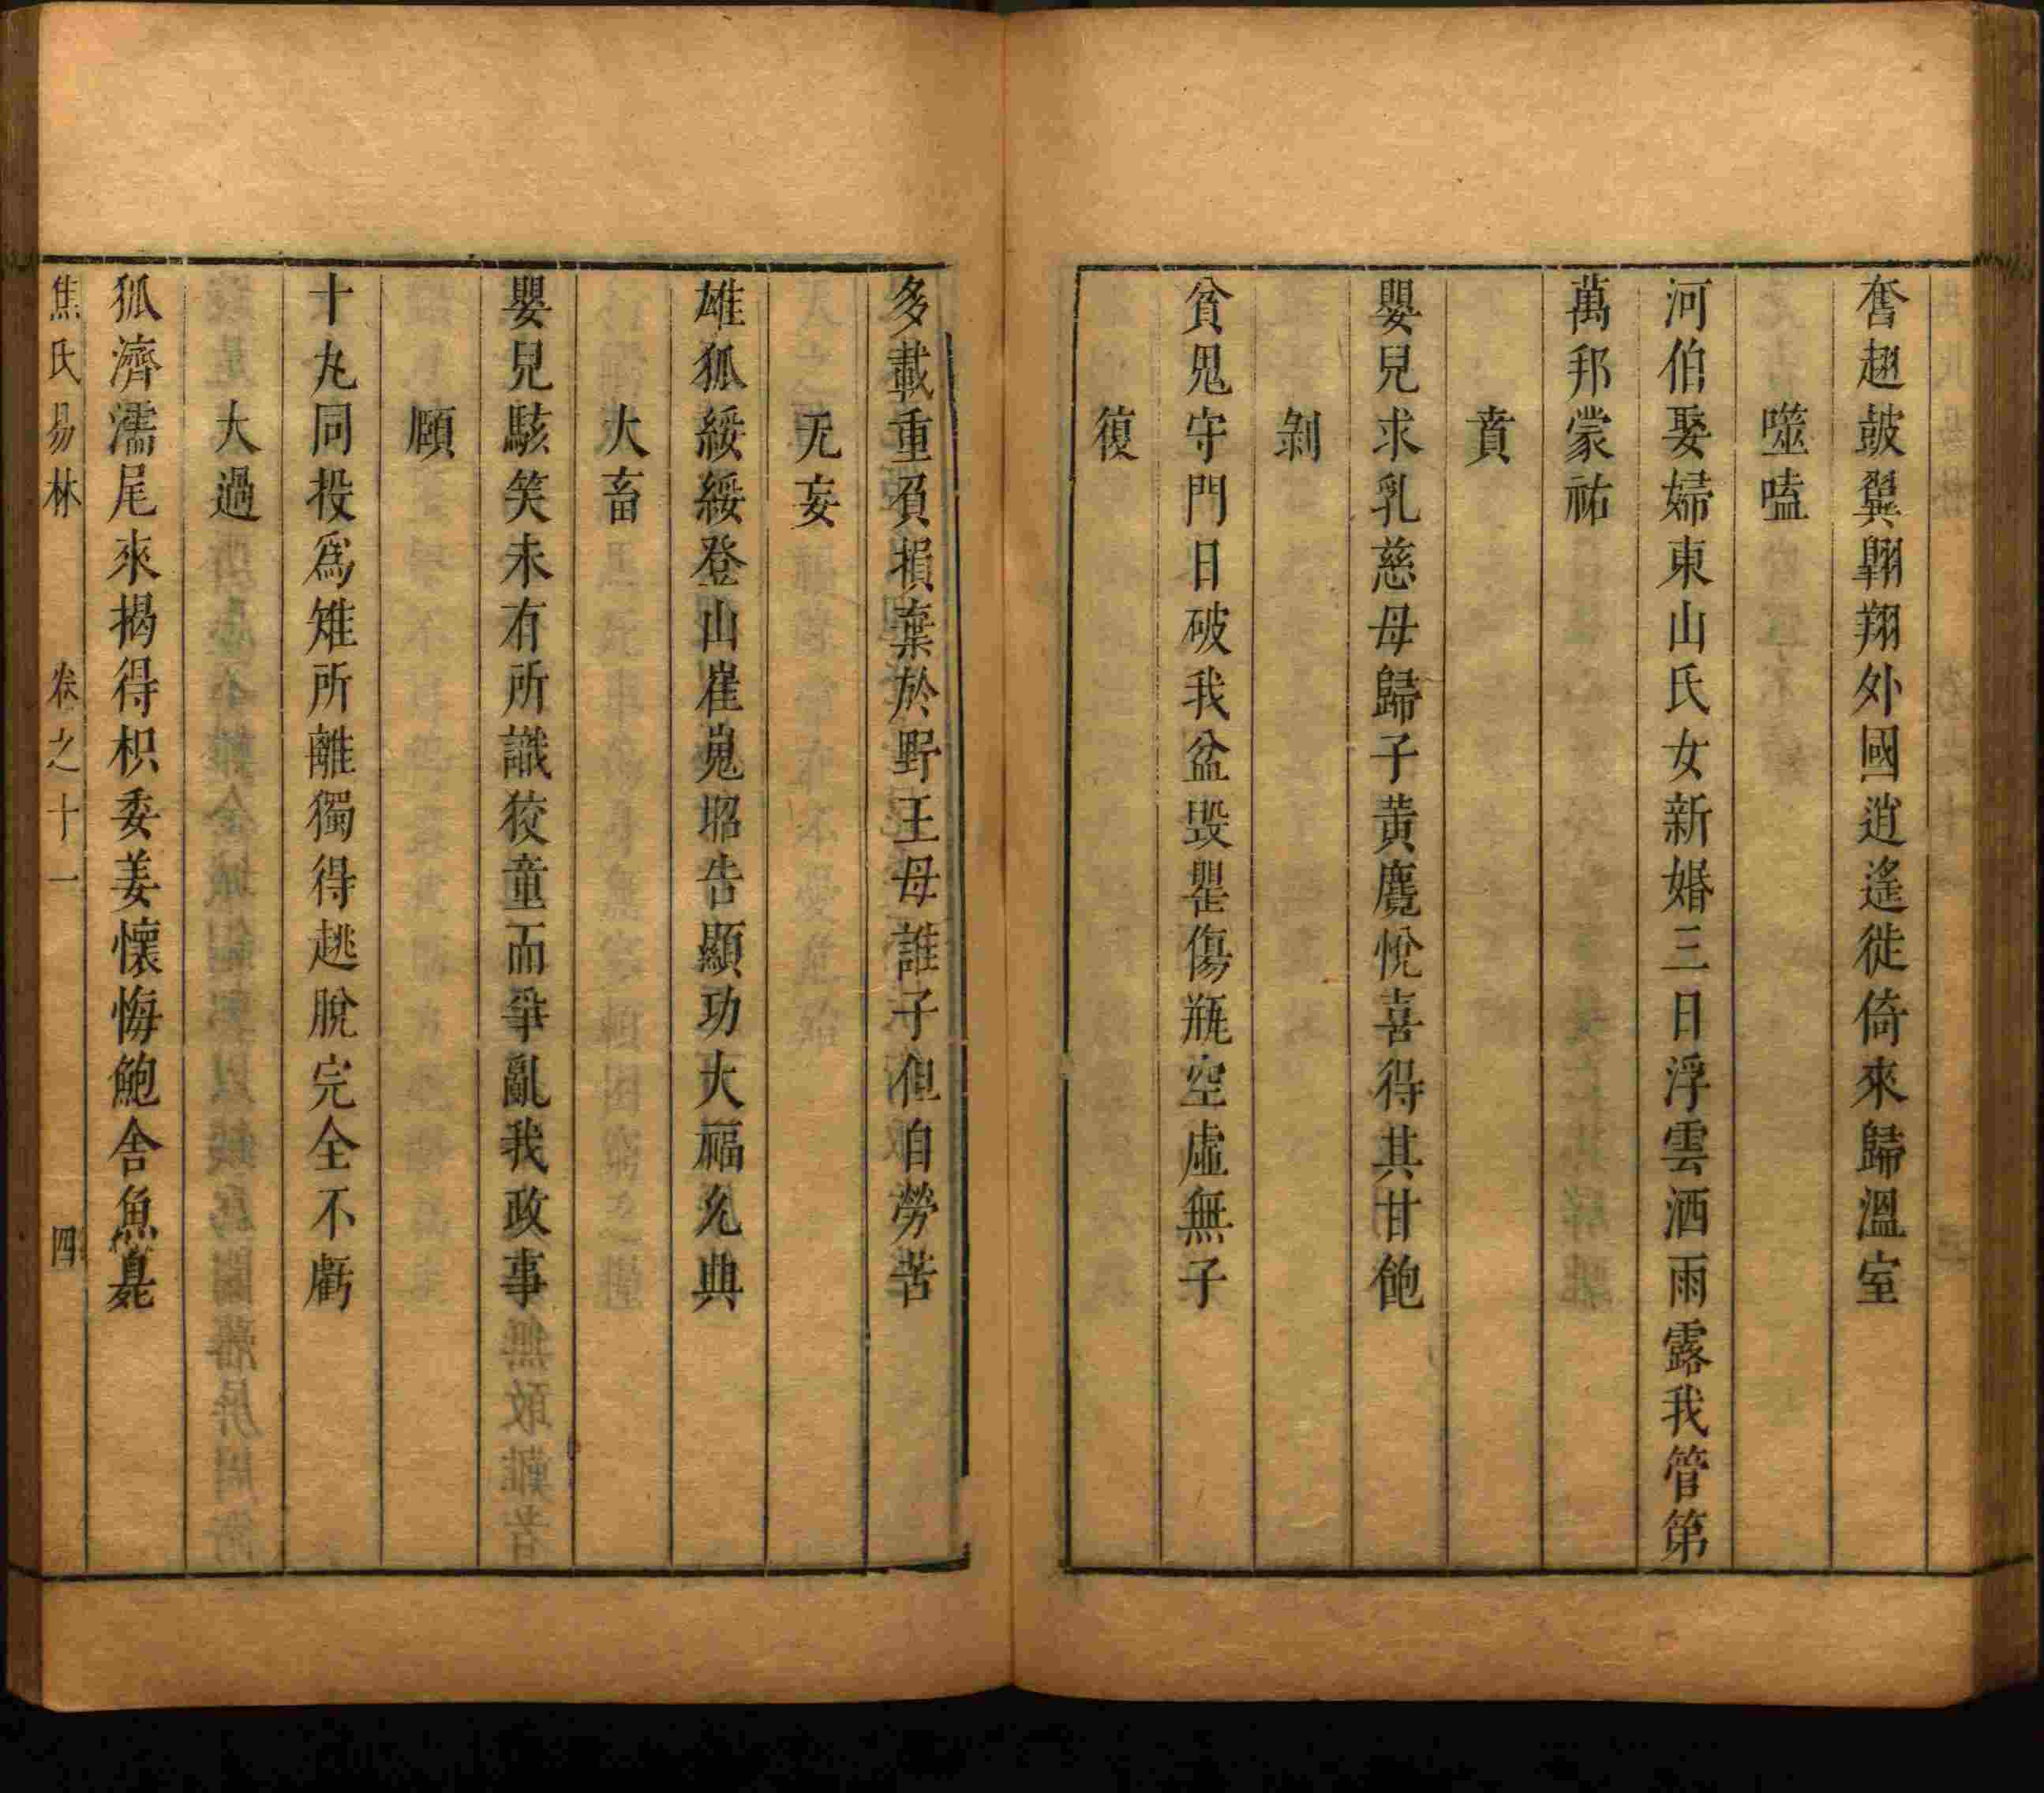 奮翅鼓翼翱翔外國逍遙徙倚來歸溫室
噬嗑
河伯娶婦東山氏女新婚三日浮雲洒雨露我管第
萬邦蒙祐
賁
嬰兒求乳慈母歸子黃麑悅喜得其甘飽
剝
貧鬼守門日破我盆毀罌傷瓶空虛無子
復
多載重負損棄於野王母誰子但自勞苦
无妄
雄狐綏綏登山崔嵬昭告顯功大福允典
大畜
嬰兒駭笑未有所識狡童而爭亂我政事
頤
十丸同投爲雉所離獨得趒脫完全不虧
大過
狐濟濡尾來揭得枳委姜懷悔鮑舍魚
焦氏易林 卷之十一 四